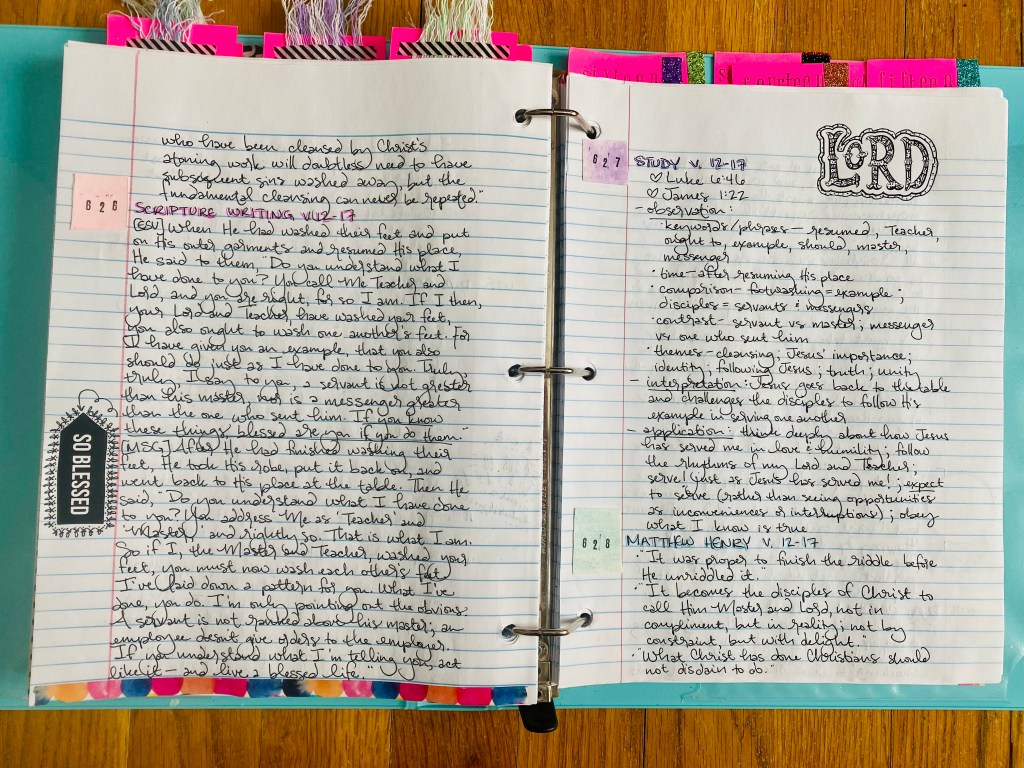 who have been cleansed by Christ's
atoning work will doubtless need to have
subsequent sins washed away, but the
fundamental cleansing can never be repeated."
626
SCRIPTURE WRITING V.12-17
[ESV] When He had washed their feet and put
on His outer garments and resumed His place,
He said to them, "Do you understand what I
have done to you? You call Me Teacher and
Lord, and you are right, for so I am. If I then,
your Lord and Teacher, have washed your feet,
you also ought to wash one another's feet. For
I have given you an example, that you also
should do just as I have done to you. Truly,
truly, I say to you, a servant is not greater
than his master, nor is a messenger greater
than the one who sent him. If you know
these things, blessed are you if you do them."
SO BLESSED
[MSG] After He had finished washing their
feet, He took His robe, put it back on, and
went back to His place at the table. Then He
said, "Do you understand what I have done
to you? You address Me as 'Teacher' and
'Master,' and rightly so. That is what I am.
So if I, the Master and Teacher, washed your
feet, you must now wash each other's feet.
I've laid down a pattern for you. What I've
done, you do. I'm only pointing out the obvious.
A servant is not ranked above his master; an
employee doesn't give orders to the employer.
If you understand what I'm telling you, act
like it — and live a blessed life."
sixteen
fourteen
fifteen
LORD
627
STUDY V. 12-17
♡ Luke 6:46
♡ James 1:22
- observation:
· keywords/phrases — resumed, Teacher,
ought to, example, should, master,
messenger
· time - after resuming His place
· comparison - footwashing = example;
disciples = servants & messengers
· contrast - servant vs master; messenger
vs one who sent him
· themes - cleansing; Jesus' importance;
identity; following Jesus; truth; unity
- interpretation: Jesus goes back to the table
and challenges the disciples to follow His
example in serving one another
- application: think deeply about how Jesus
has served me in love & humility; follow
the rhythms of my Lord and Teacher;
serve! just as Jesus has served me!; expect
to serve (rather than seeing opportunities
as inconveniences or interruptions); obey
what I know is true
628
MATTHEW HENRY V. 12-17
· "It was proper to finish the riddle before
He unriddled it."
· "It becomes the disciples of Christ to
call Him Master and Lord, not in
compliment, but in reality; not by
constraint, but with delight."
· "What Christ has done Christians should
not disdain to do."